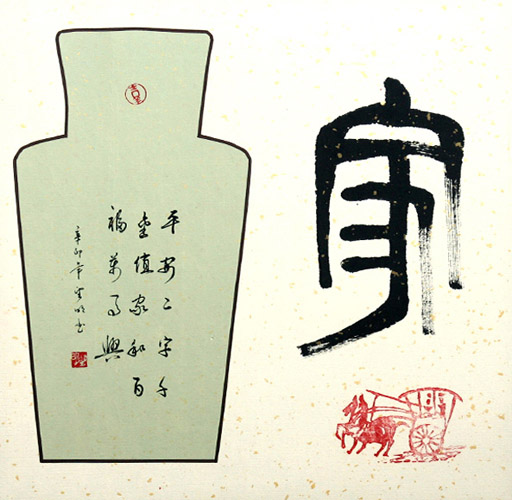 家
平安二字千
金值家和百
福萬事興
辛卯